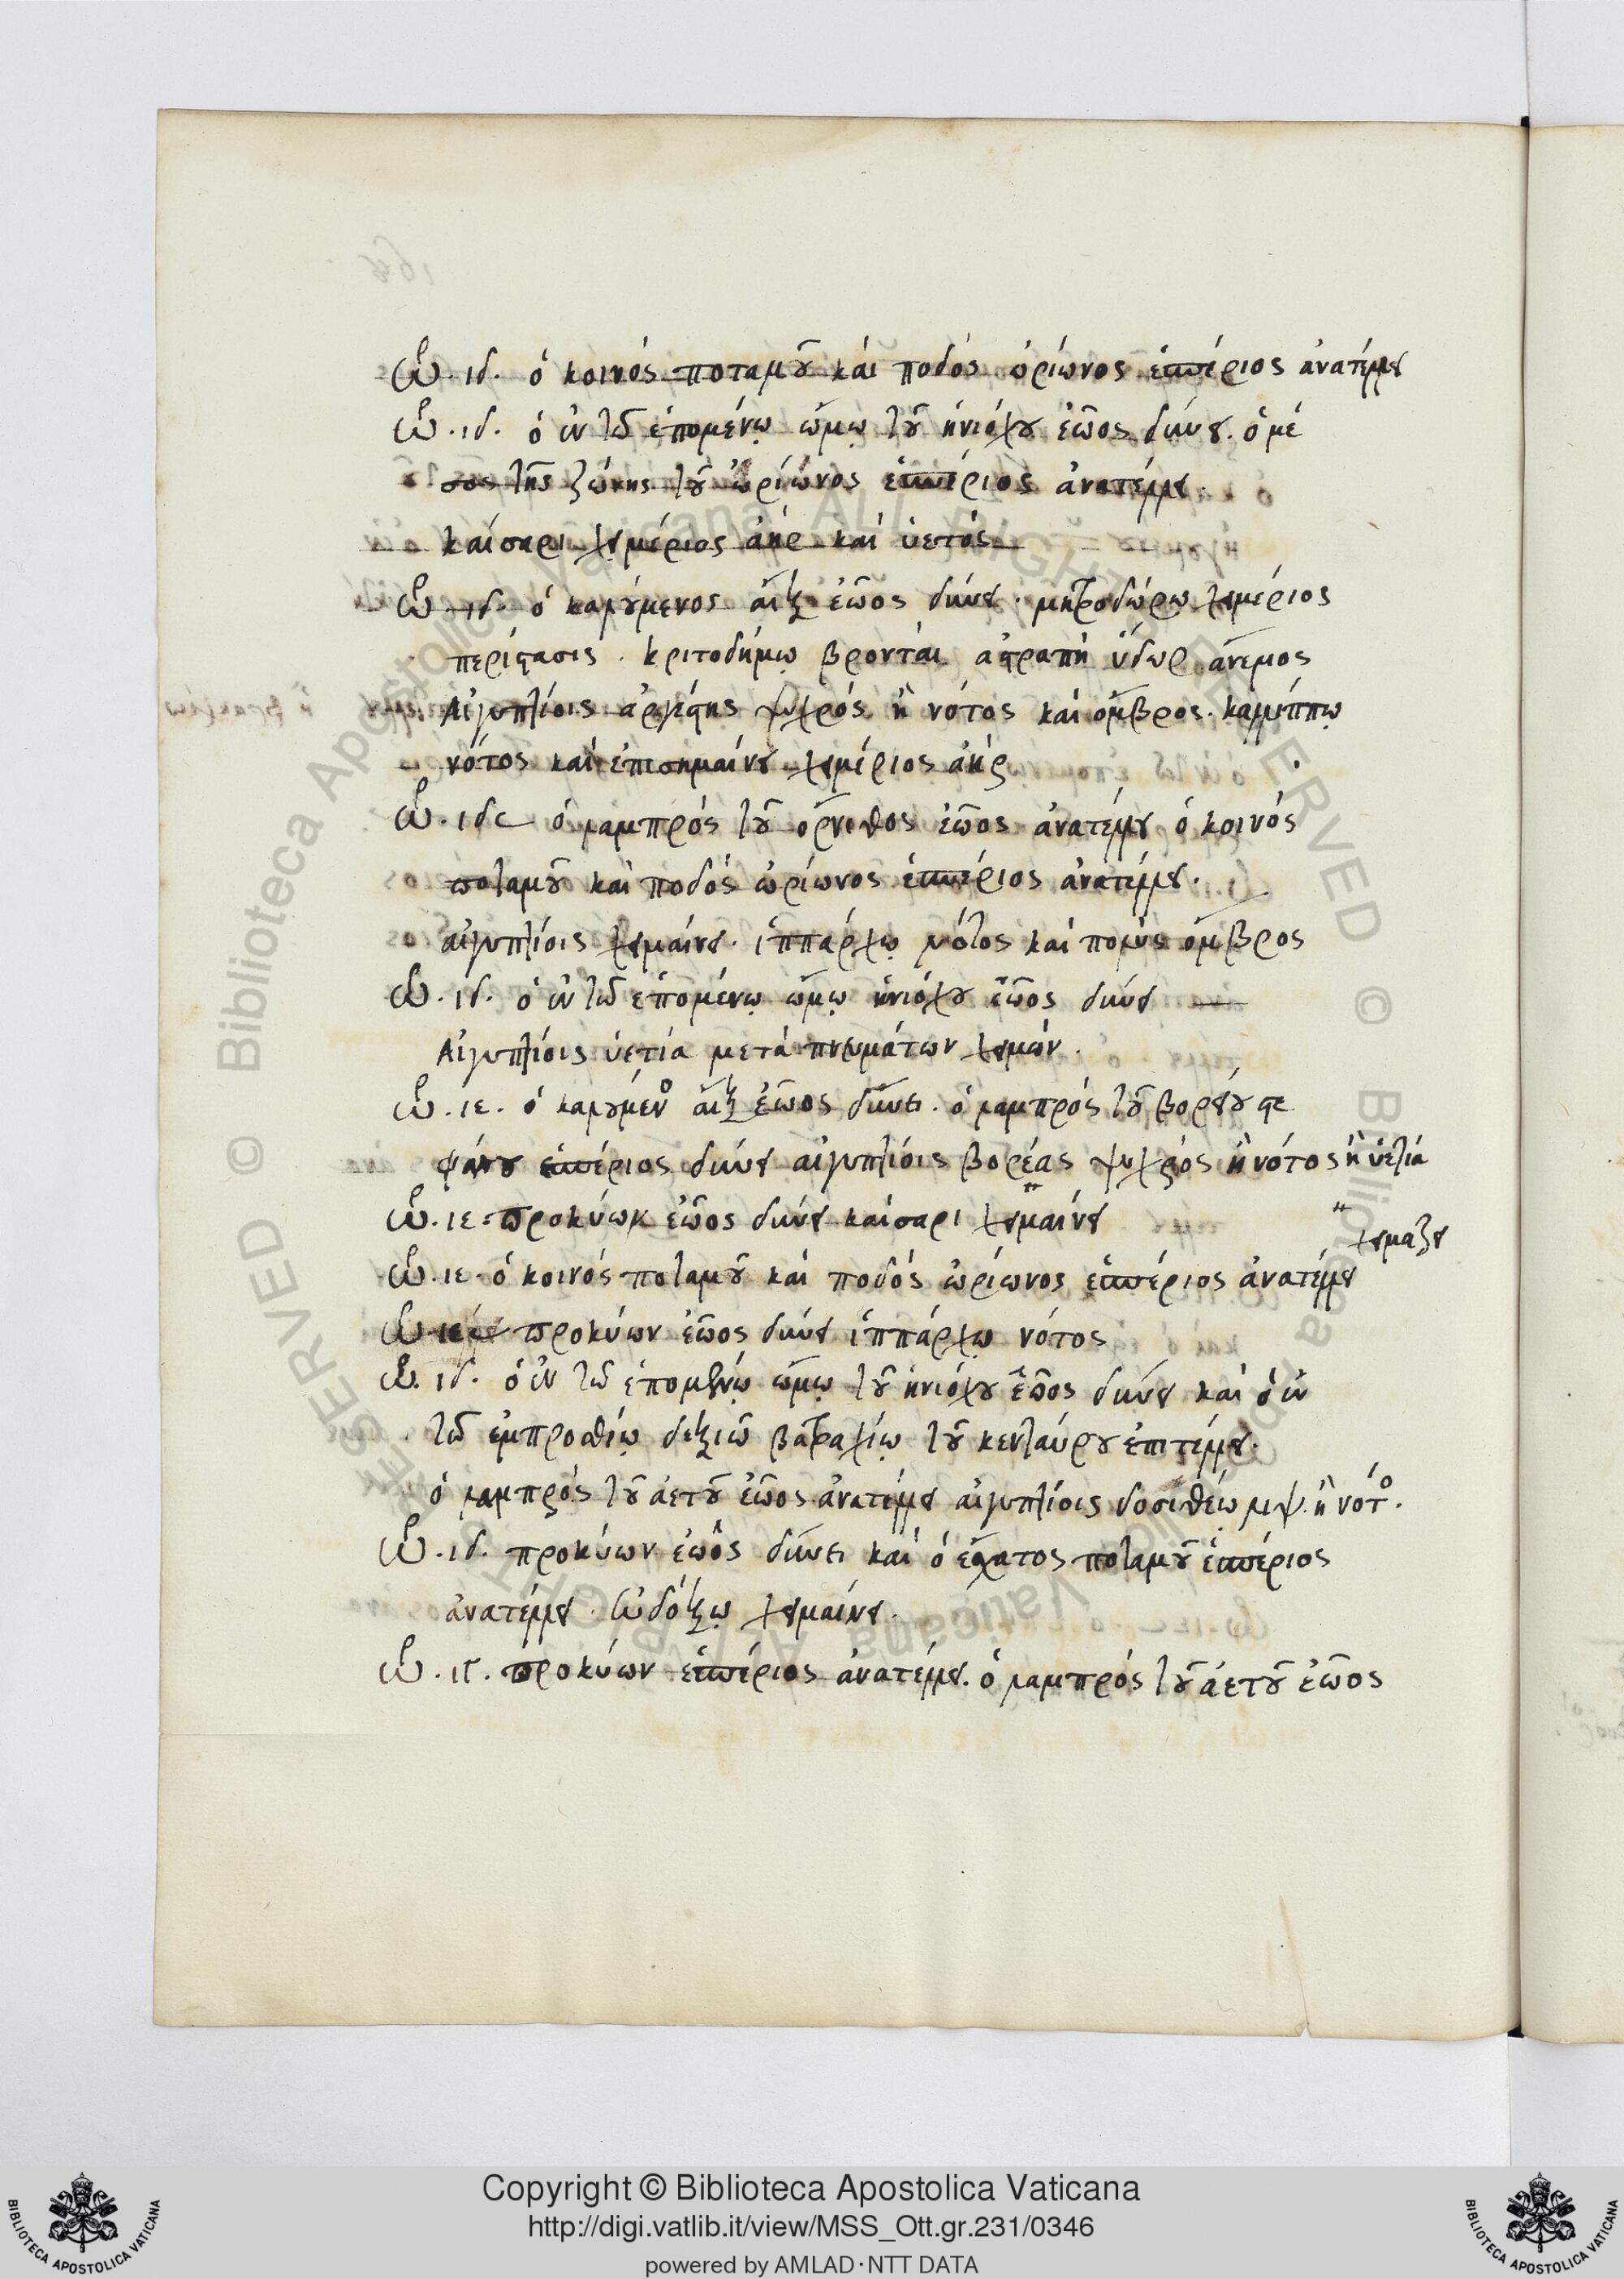 ὡρ. ιδ. ὁ κοινός ποταμοῦ καί ποδός ὠρίωνος ἑσπέριος ἀνατέλλει
ὡρ. ιδ. ὁ ἐν τῶ ἑπομένῳ ὤμῳ τοῦ ἡνιόχου ἑῶος δύνει. ὁ μέ
σος τῆς ζώνης τοῦ ὠρίωνος ἑσπέριος ἀνατέλλει.
καίσαρι χειμέριος ἀήρ καί ὑετός
ὡρ. ιδ. ὁ καλούμενος αἴξ ἑῶος δύνει. μητροδώρῳ χειμέριος
περίστασις. κριτοδήμῳ βρονταί ἀστραπή ὕδωρ ἄνεμος
Αἰγυπτίοις ἀργέστης ψυχρός ἢ νότος καί ὄμβρος. καλλίππῳ
νότος καί ἐπισημαίνει χειμέριος ἀήρ
ὡρ. ιδ ὁ λαμπρός τοῦ ὄρνιθος ἑῶος ἀνατέλλει ὁ κοινός
ποταμοῦ καί ποδός ὠρίωνος ἑσπέριος ἀνατέλλει.
αἰγυπτίοις χειμαίνει. ἱππάρχῳ νότος καί πολύς ὄμβρος
ὡρ. ιδ. ὁ ἐν τῶ ἑπομένῳ ὤμῳ ἡνιόχου ἑῶος δύνει
Αἰγυπτίοις ὑετία μετά πνευμάτων χειμών.
ὡρ. ιε. ὁ καλούμενος αἴξ ἑῶος δύνει. ὁ λαμπρός τοῦ βορείου στε
φάνου ἑσπέριος δύνει αἰγυπτίοις βορέας ψυχρός ἢ νότος ἢ ὑετία
ὡρ. ιε. προκύων ἑῶος δύνει καίσαρι χειμαίνει
χειμάζει
ὡρ. ιε. ὁ κοινός ποταμοῦ καί ποδός ὠρίωνος ἑσπέριος ἀνατέλλει
ὡρ προκύων ἑῶος δύνει ἱππάρχῳ νότος
ὡρ. ιδ. ὁ ἐν τῶ ἑπομένῳ ὤμῳ τοῦ ἡνιόχου ἑῶος δύνει καί ὁ ἐν
τῶ ἐμπροσθίῳ δεξιῶ βατραχίῳ τοῦ κενταύρου ἐπιτέλλει.
ὁ λαμπρός τοῦ ἀετοῦ ἑῶος ἀνατέλλει αἰγυπτίοις δοσιθέῳ λιψ. ἢ νότος.
ὡρ. ιδ. προκύων ἑῶος δύνει καί ὁ ἔσχατος ποταμοῦ ἑσπέριος
ἀνατέλλει. εὐδόξῳ χειμαίνει.
ὡρ. προκύων ἑσπέριος ἀνατέλλει. ὁ λαμπρός τοῦ ἀετοῦ ἑῶος
Copyright © Biblioteca Apostolica Vaticana
http://digi.vatlib.it/view/MSS_Ott.gr.231/0346
powered by AMLAD·NTT DATA